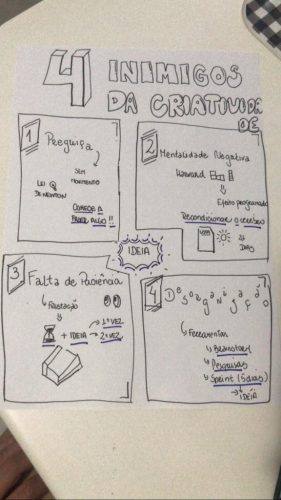 4 INIMIGOS
DA CRIATIVIDA
DE
1 Preguiça
SEM
MOVIMENTO
LEI
DE NEWTON
COMECE A
FAZER ALGO!!
2
Mentalidade Negativa
HARVARD
Efeito programado
Recondicionar o cérebro
21
DIAS
IDEIA
3
Falta de Paciência
FRUSTAÇÃO
+ IDEIA → 1ª VEZ
→ 2ª VEZ
4 Desorganização
Ferramentas
Brainstorm
Pesquisas
Sprint (5 dias)
→ IDEIA